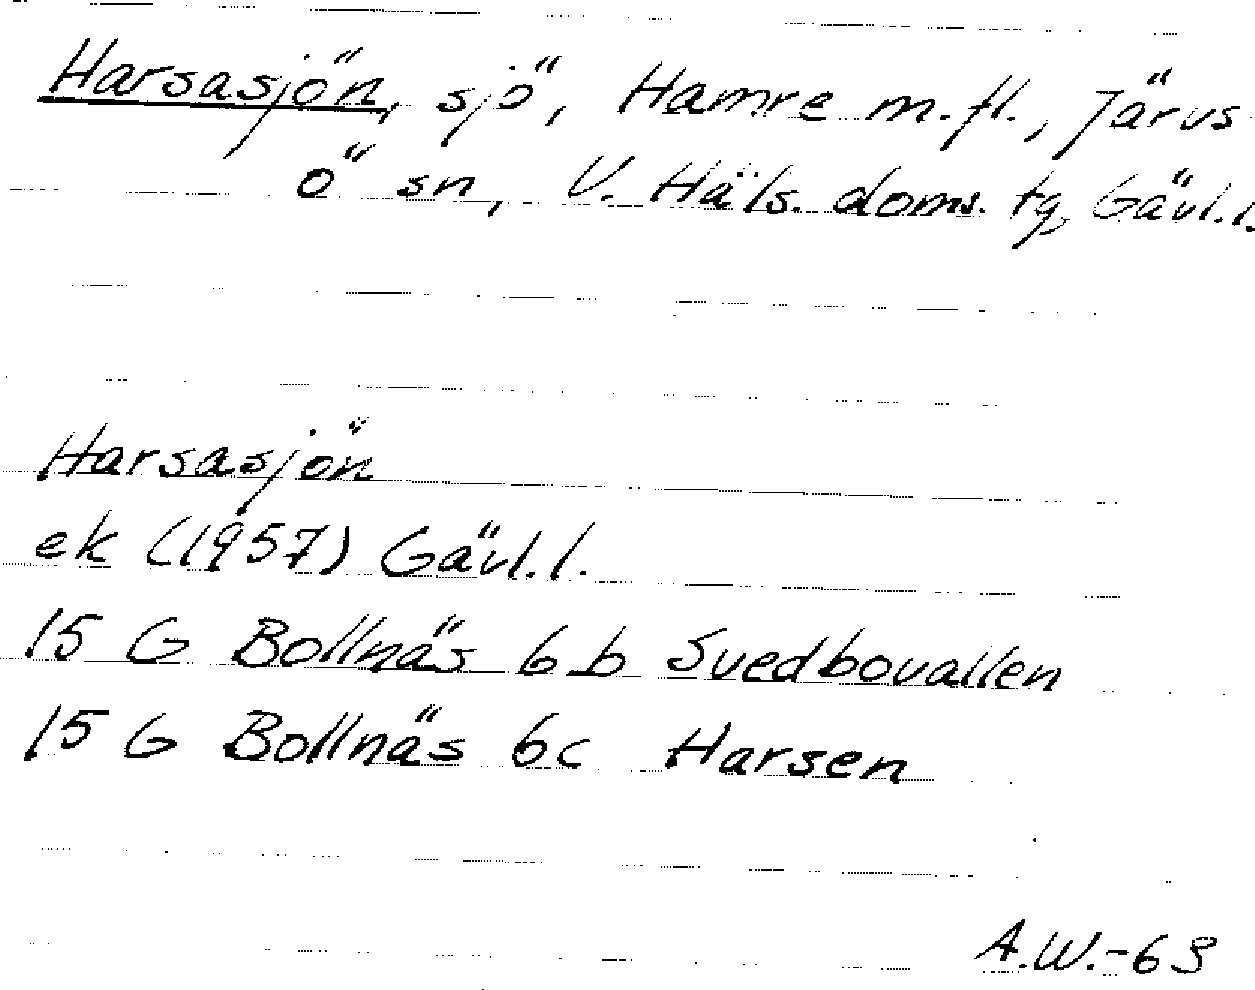 Harsasjön, sjö, Hamre m.fl., Järvs-
ö sn, V. Häls. doms. tg, Gävl.l.
Harsasjön
ek (1957) Gävl.l.
15 G Bollnäs 6 b Svedbovallen
15 G Bollnäs 6c Harsen
A.W.-69